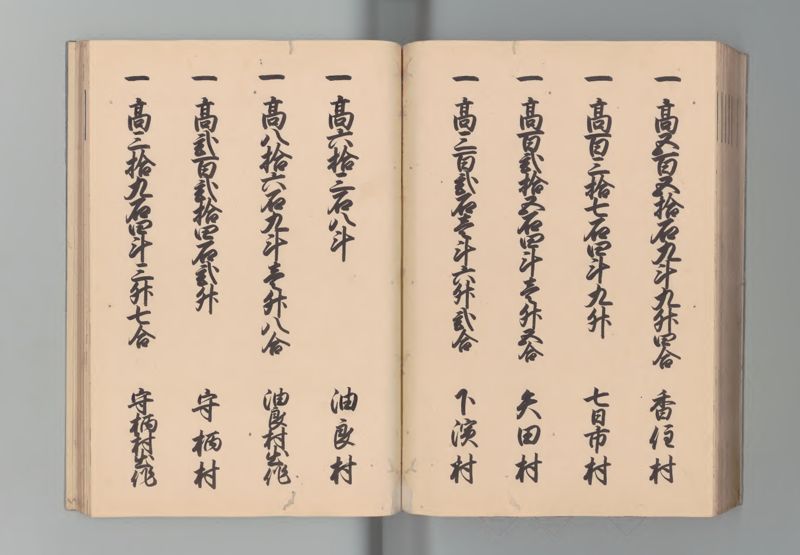 一 高五百五拾石九斗九升四合 香住村
一 高百三拾七石四斗九升 七日市村
一 高百弐拾五石四斗壱升五合 矢田村
一 高三百弐石壱斗六升弐合 下濱村
一 高六拾三石八斗 油良村
一 高八拾六石九斗壱升八合 油良村出作
一 高弐百弐拾四石弐升 守柄村
一 高三拾九石四斗三升七合 守柄村出作